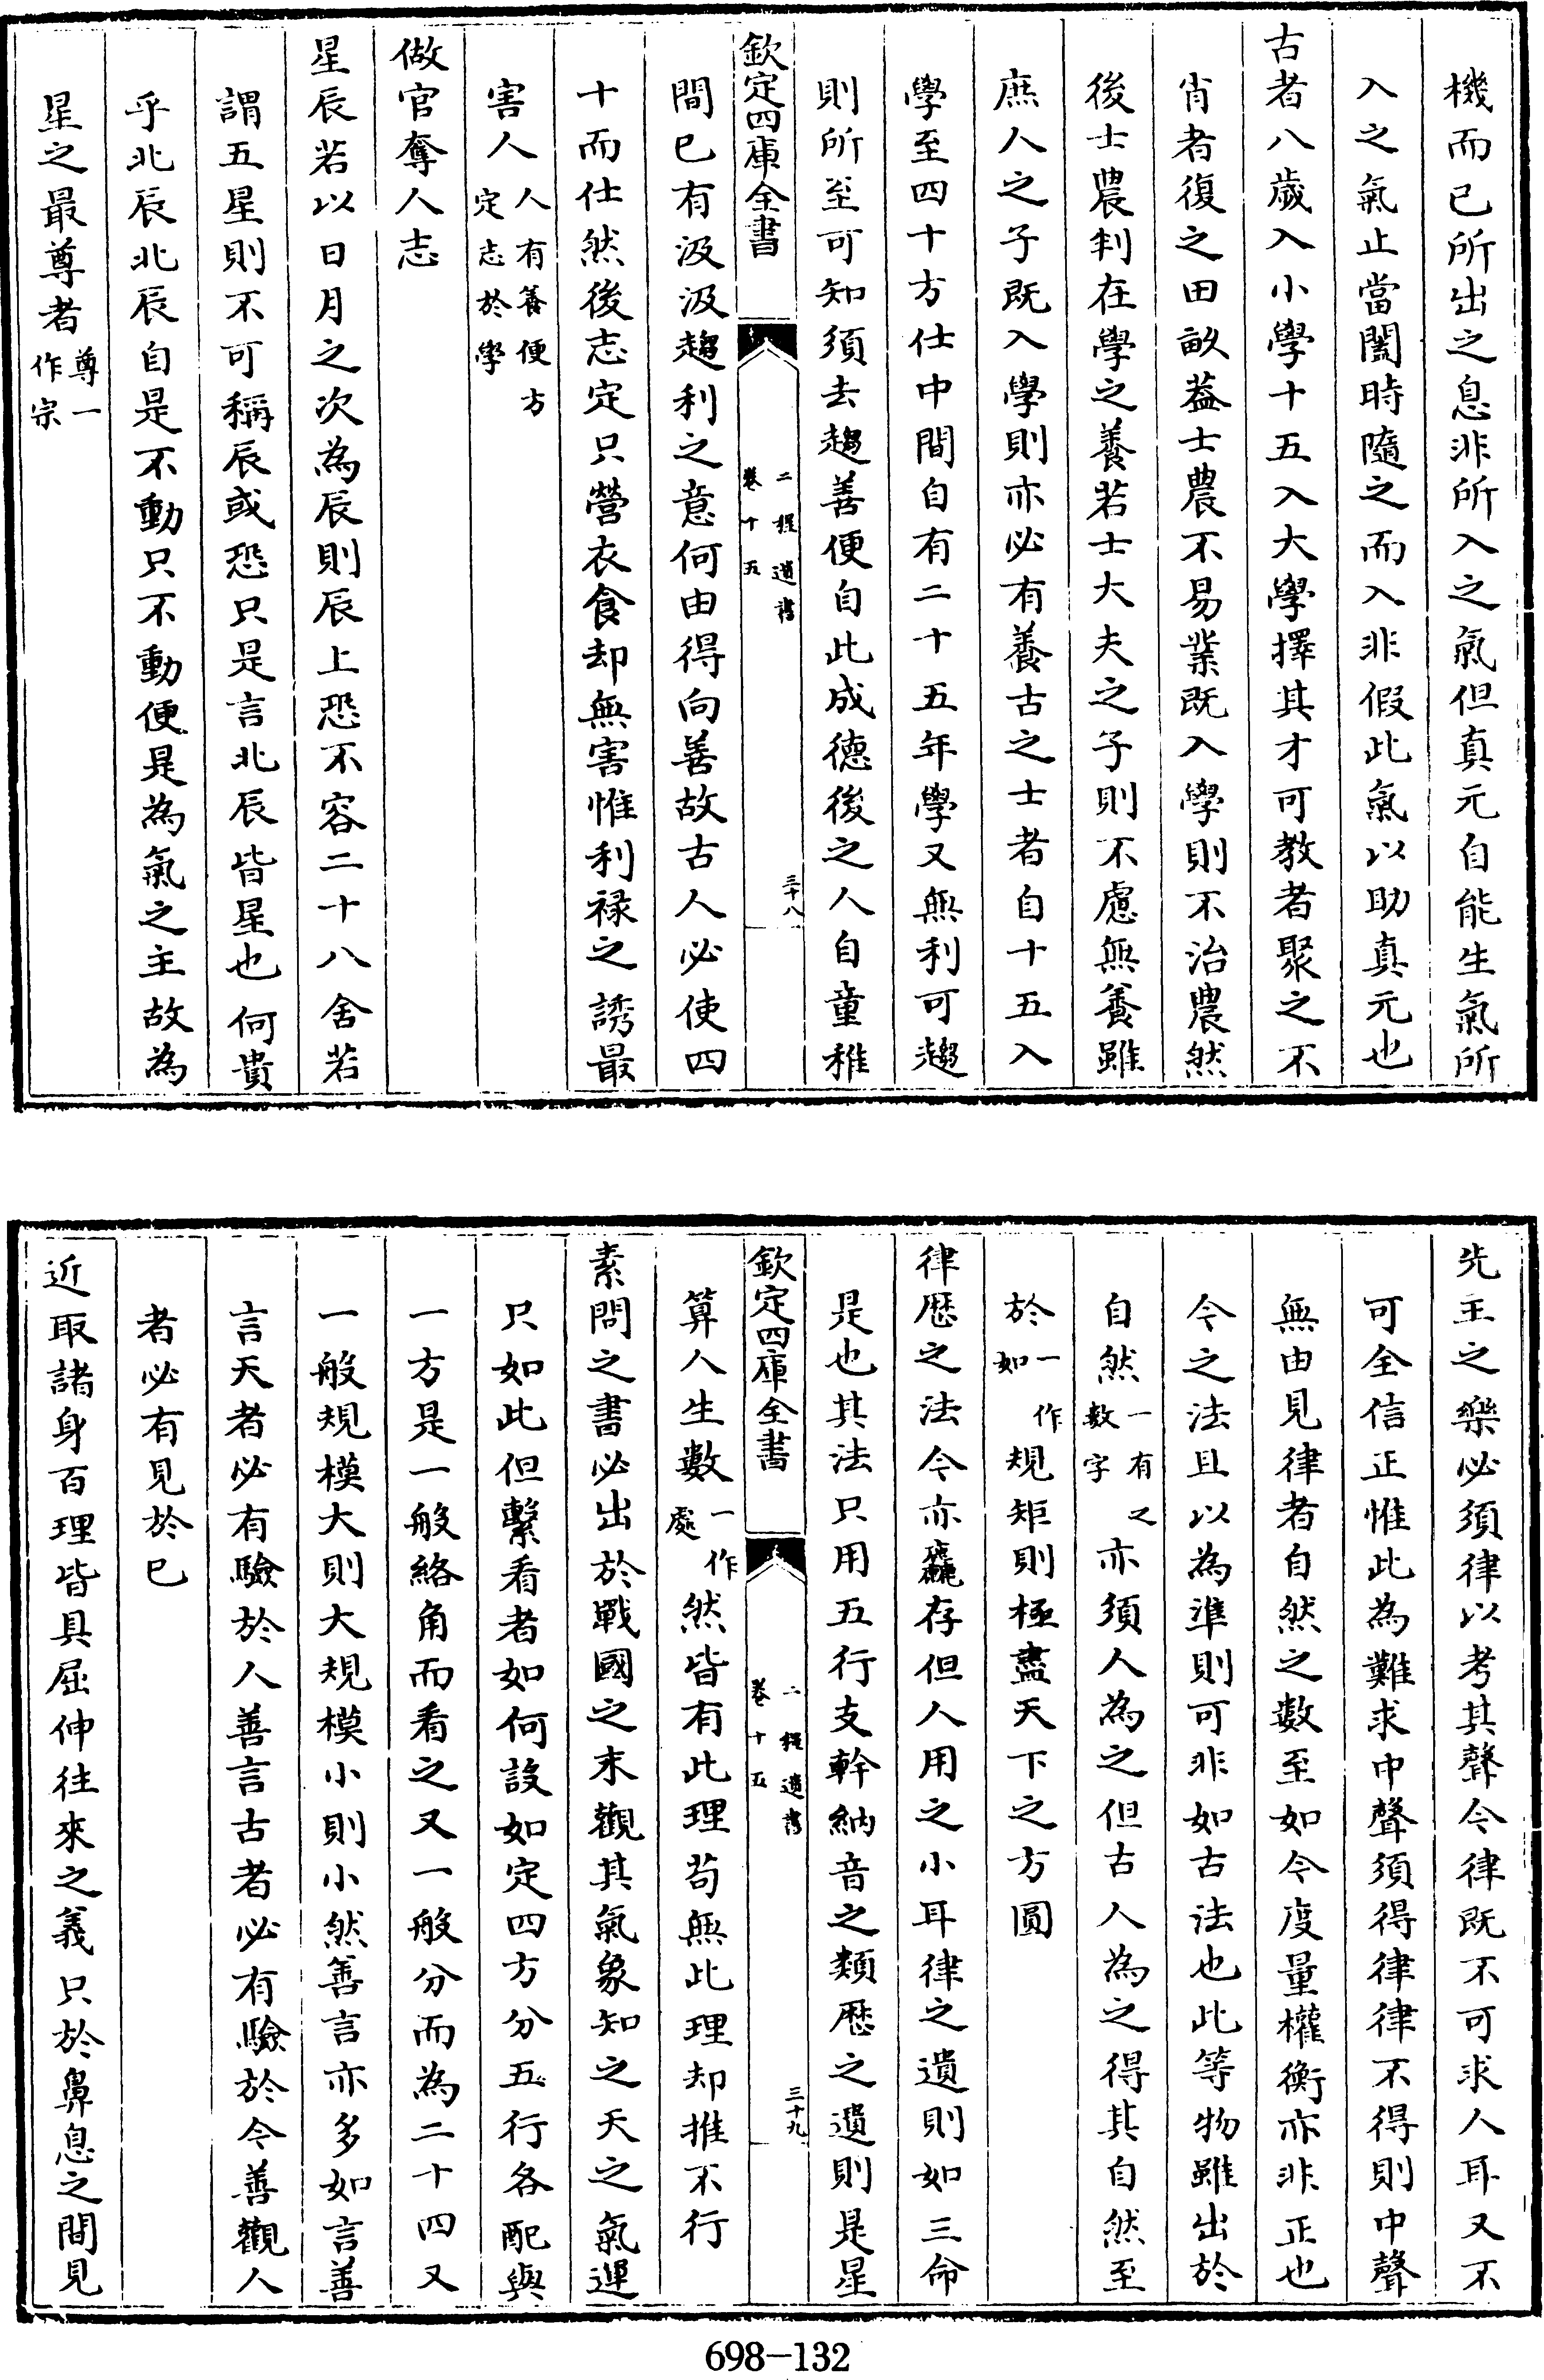 機而已所出之息非所入之氣但真元自能生氣所
入之氣止當闔時隨之而入非假此氣以助真元也
古者八歲入小學十五入大學擇其才可教者聚之不
肖者復之田畝蓋士農不易業既入學則不治農然
後士農判在學之養若士大夫之子則不慮無養雖
庶人之子既入學則亦必有養古之士者自十五入
學至四十方仕中間自有二十五年學又無利可趨
則所至可知須去趨善便自此成德後之人自童稚
欽定四庫全書
二程遺書
卷十五
三十八
間已有汲汲趨利之意何由得向善故古人必使四
十而仕然後志定只營衣食却無害惟利祿之誘最
害人人有養便方定志於學
做官奪人志
星辰若以日月之次為辰則辰上恐不容二十八舍若
謂五星則不可稱辰或恐只是言北辰皆星也何貴
乎北辰北辰自是不動只不動便是為氣之主故為
星之最尊者尊一作宗
先王之樂必須律以考其聲今律既不可求人耳又不
可全信正惟此為難求中聲須得律律不得則中聲
無由見律者自然之數至如今度量權衡亦非正也
今之法且以為準則可非如古法也此等物雖出於
自然一有之數字亦須人為之但古人為之得其自然至
於一作如規矩則極盡天下之方圓
律歷之法今亦麤存但人用之小耳律之遺則如三命
是也其法只用五行支幹納音之類歷之遺則是星
欽定四庫全書
二程遺書
卷十五
三十九
算人生數一作處然皆有此理苟無此理却推不行
素問之書必出於戰國之末觀其氣象知之天之氣運
只如此但繫看者如何設如定四方分五行各配與
一方是一般絡角而看之又一般分而為二十四又
一般規模大則大規模小則小然善言亦多如言善
言天者必有驗於人善言古者必有驗於今善觀人
者必有見於已
近取諸身百理皆具屈伸往來之義只於鼻息之間見
698-132